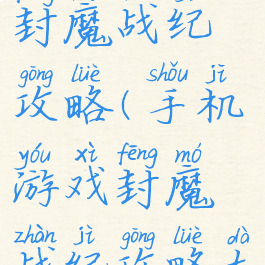 封魔战纪
gōng lüè shǒu jī
攻略(手机
yóu xì fēng mó
游戏封魔
zhàn jì gōng lüè dà
战纪攻略大